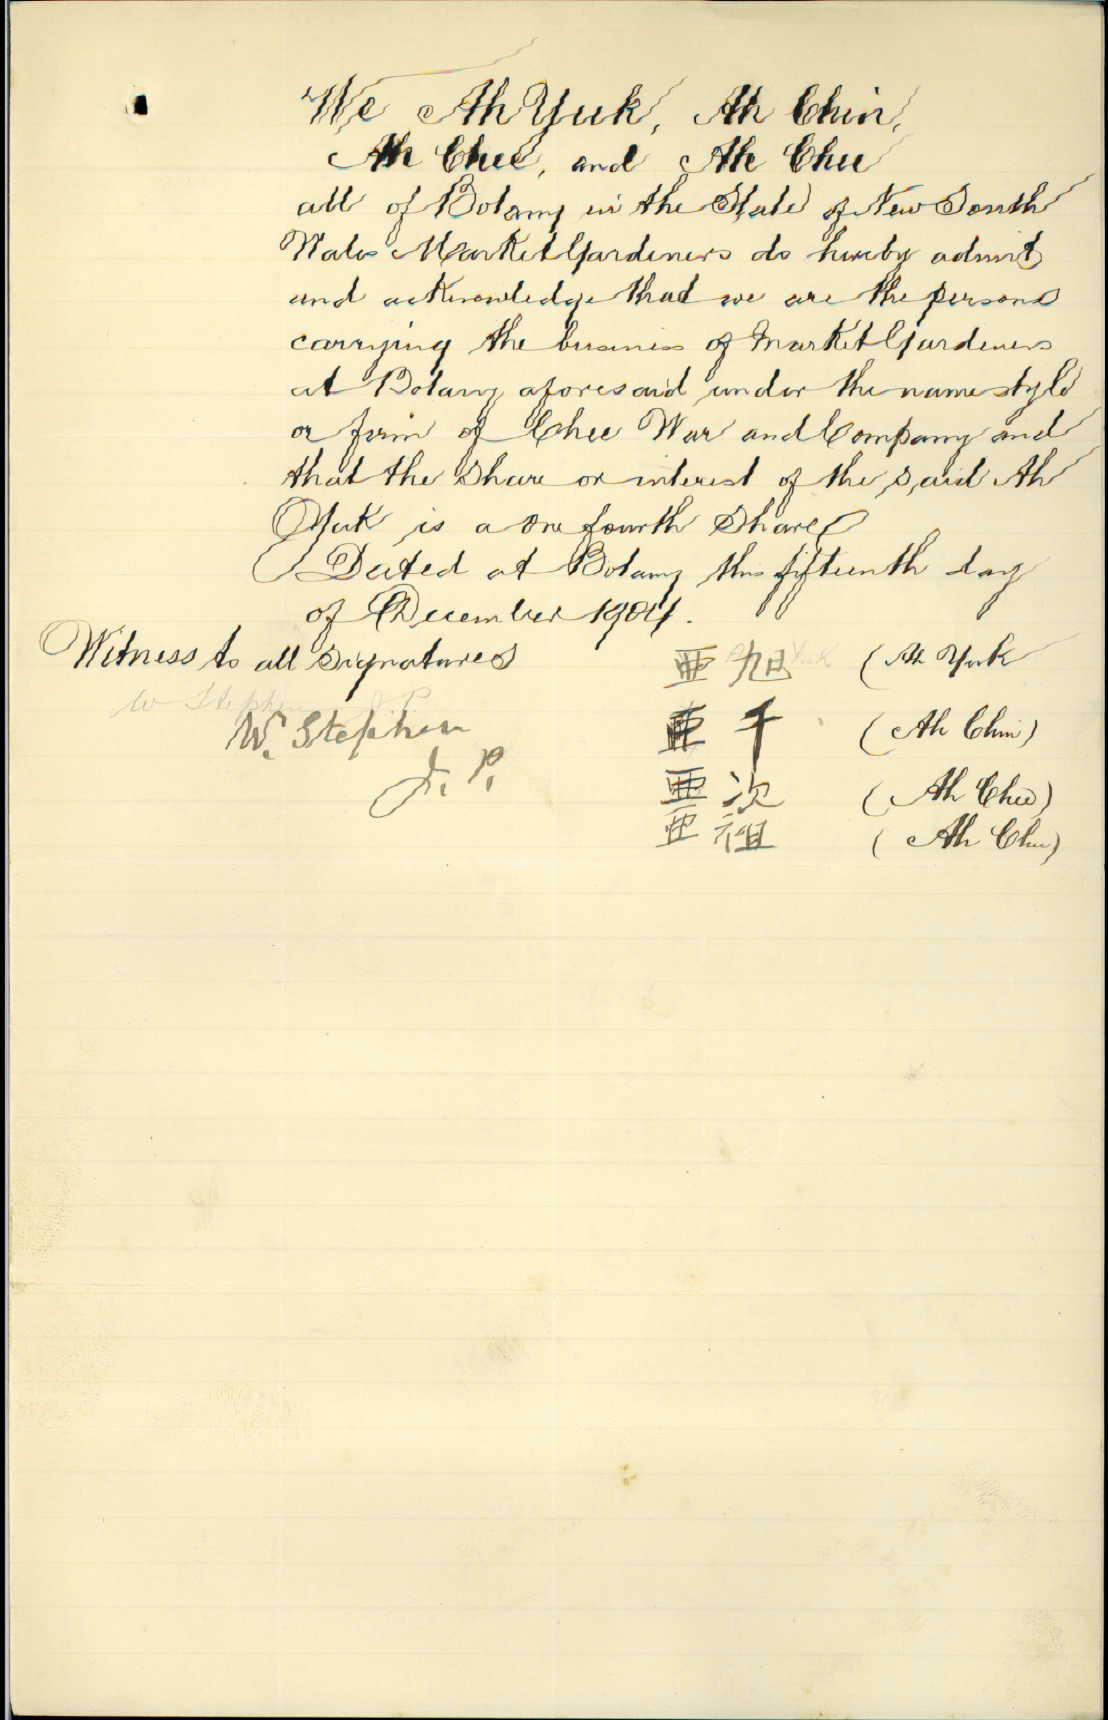 We Ah Yuk, Ah Chin,
Ah Chee, and Ah Chu
all of Botany in the State of New South
Wales Market Gardeners do hereby admit
and acknowledge that we are the persons
carrying the business of Market Gardeners
at Botany aforesaid under the name style
or firm of Chee War and Company and
that the Share or interest of the said Ah
Yuk is a one fourth Share
Dated at Botany this fifteenth day
of December 1904.
Witness to all Signatures
亜旭 (Ah Yuk
W Stephen J P
W. Stephen
亜千 (Ah Chin)
J. P.
亜次 (Ah Chee)
亜祖 (Ah Chu)